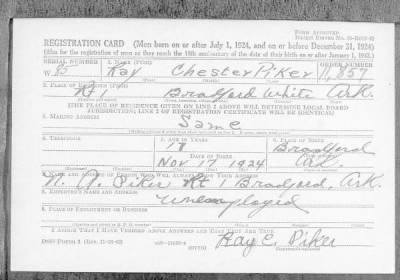 REGISTRATION CARD (Men born on or after July 1, 1924, and on or before December 31, 1924)
(Also for the registration of men as they reach the 18th anniversary of the date of their birth on or after January 1, 1925.)
SERIAL NUMBER 1. NAME (Print) ORDER NUMBER
W. 83 Ray Chester Piker 11,857
2. PLACE OF RESIDENCE (Print)
Rt 1 Bradford White Ark.
[THE PLACE OF RESIDENCE GIVEN ON LINE 2 ABOVE WILL DETERMINE LOCAL BOARD
JURISDICTION; LINE 2 OF REGISTRATION CERTIFICATE WILL BE IDENTICAL]
3. MAILING ADDRESS
Same
4. TELEPHONE 5. AGE IN YEARS 6. PLACE OF BIRTH
18 Bradford
DATE OF BIRTH
Nov 17 1924 Ark.
7. NAME AND ADDRESS OF PERSON WHO WILL ALWAYS KNOW YOUR ADDRESS
Piker Rt 1 Bradford, Ark.
8. EMPLOYER'S NAME AND ADDRESS
Unemployed
9. PLACE OF EMPLOYMENT OR BUSINESS
I AFFIRM THAT I HAVE VERIFIED ABOVE ANSWERS AND THAT THEY ARE TRUE.
DSS Form 1
(over) Ray C. Piker